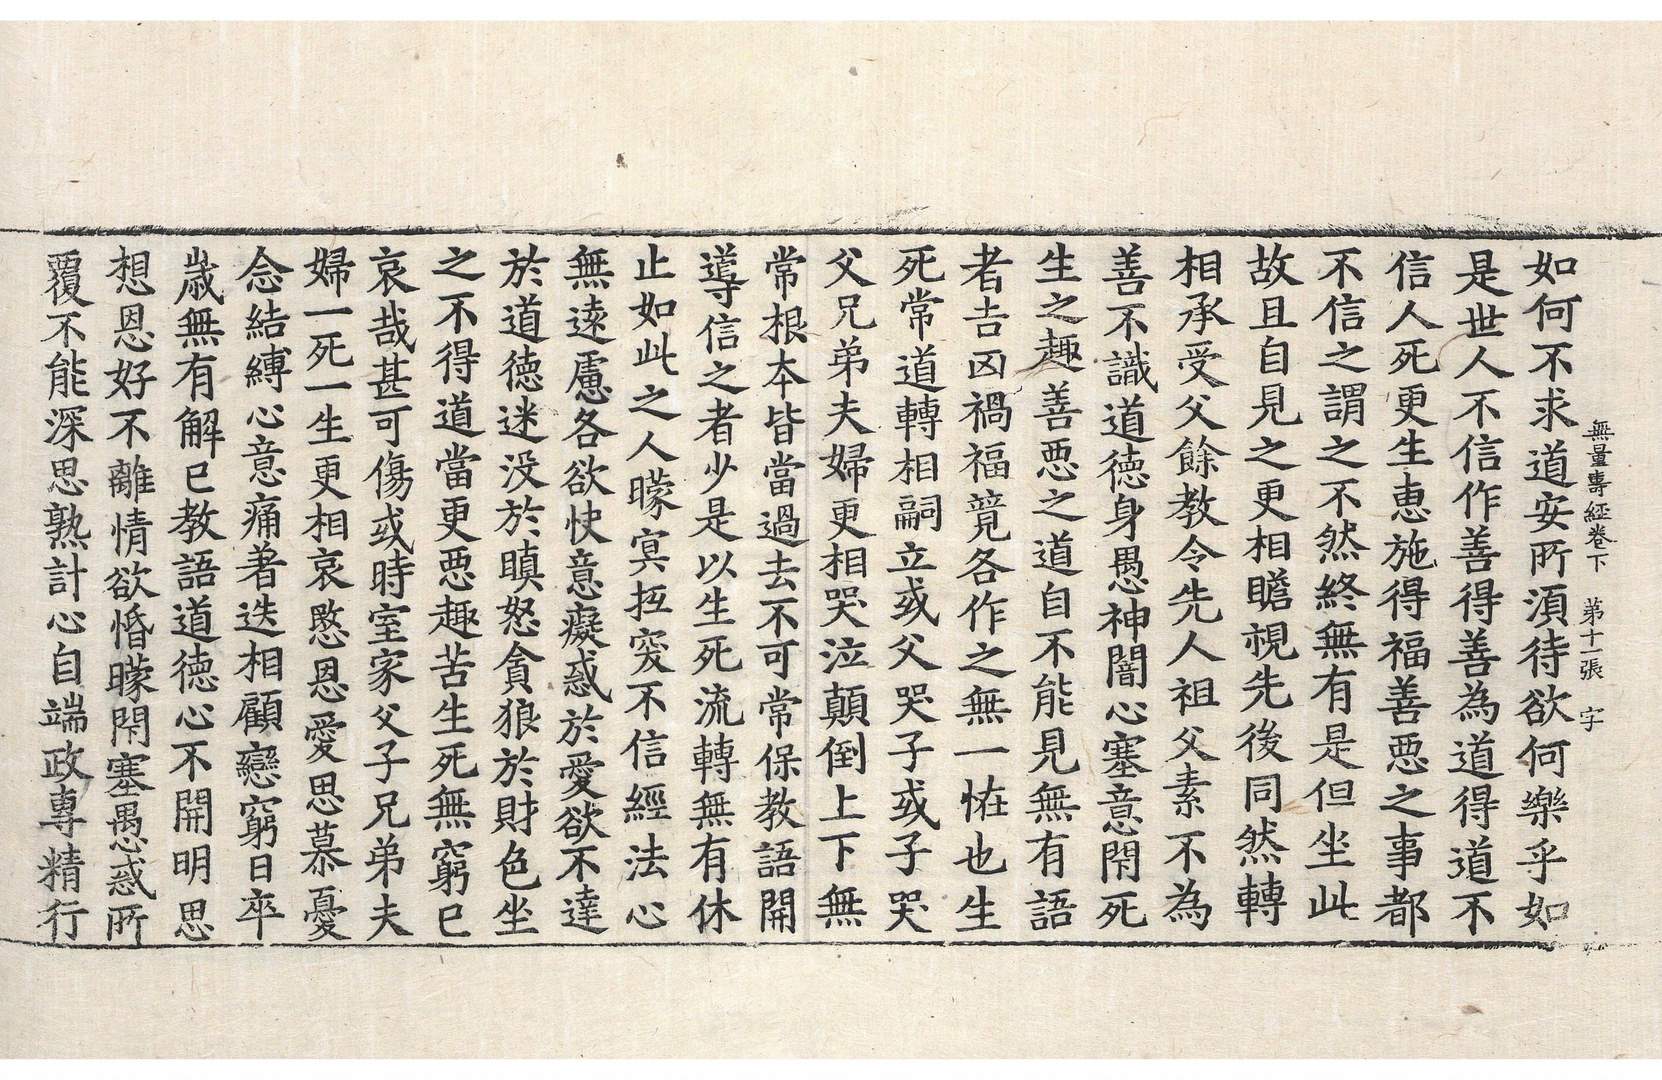 無量壽經卷下 第十一張 字
如何不求道安所湏待欲何樂乎如
是世人不信作善得善為道得道不
信人死更生惠施得福善惡之事都
不信之謂之不然終無有是但坐此
故且自見之更相瞻視先後同然轉
相承受父餘教令先人祖父素不為
善不識道德身愚神闇心塞意閇死
生之趣善惡之道自不能見無有語
者吉凶禍福競各作之無一恠也生
死常道轉相嗣立或父哭子或子哭
父兄弟夫婦更相哭泣顛倒上下無
常根本皆當過去不可常保教語開
導信之者少是以生死流轉無有休
止如此之人矇冥抵突不信經法心
無遠慮各欲快意癡惑於愛欲不達
於道德迷没於瞋怒貪狼於財色坐
之不得道當更惡趣苦生死無窮已
哀哉甚可傷或時室家父子兄弟夫
婦一死一生更相哀愍恩愛思慕憂
念結縛心意痛著迭相顧戀窮日卒
歳無有解已教語道德心不開明思
想恩好不離情欲惛矇閇塞愚惑所
覆不能深思熟計心自端政專精行